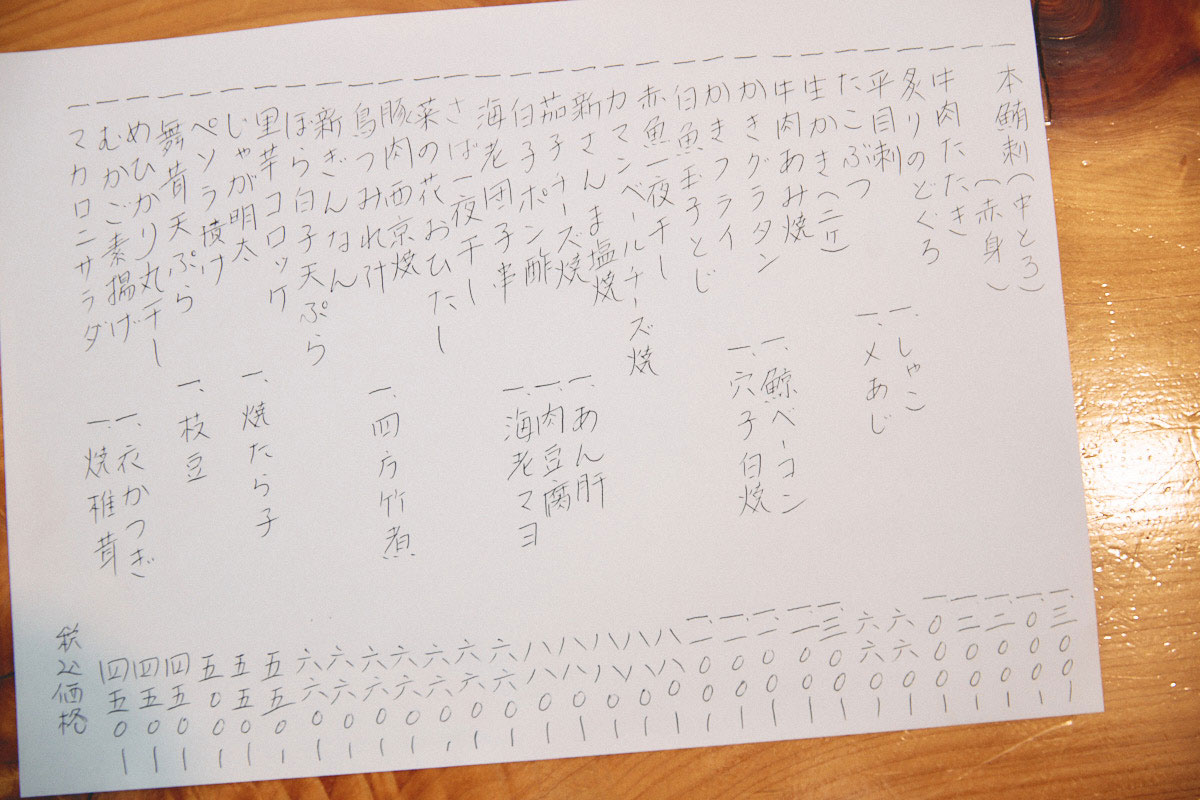 一、本鮪刺(中とろ) 一、三〇〇ー
(赤身) 一、〇〇〇ー
一、牛肉たたき 一、三〇〇ー
一、炙りのどぐろ 一、三〇〇ー
一、平目刺 一、しゃこ 一、〇〇〇ー
一、たこぶつ 一、〆あじ 六六〇ー
一、生かき(二ケ) 六六〇ー
一、牛肉あみ焼 一、三〇〇ー
一、かきグラタン 一、鯨ベーコン 一、一〇〇ー
一、かきフライ 一、穴子白焼 一、一〇〇ー
一、白魚玉子とじ 一、一〇〇ー
一、赤魚一夜干し 一、一〇〇ー
一、カマンベールチーズ焼 八八〇ー
一、新さんま塩焼 八八〇ー
一、茄子チーズ焼 一、あん肝 八八〇ー
一、白子ポン酢 一、肉豆腐 八八〇ー
一、海老団子串 一、海老マヨ 八八〇ー
一、さば一夜干し 六六〇ー
一、菜の花おひたし 六六〇ー
一、豚肉西京焼 六六〇ー
一、鳥つみれ汁 一、四方竹煮 六六〇ー
一、新ぎんなん 六六〇ー
一、ほら白子天ぷら 六六〇ー
一、里芋コロッケ 六六〇ー
一、じゃが明太 一、焼たら子 五五〇ー
一、ペソラ漬け 五五〇ー
一、舞茸天ぷら 一、枝豆 五〇〇ー
一、めひかり丸干し 四五〇ー
一、むかご素揚げ 一、衣かつぎ 四五〇ー
一、マカロニサラダ 一、焼椎茸 四五〇ー
税込価格